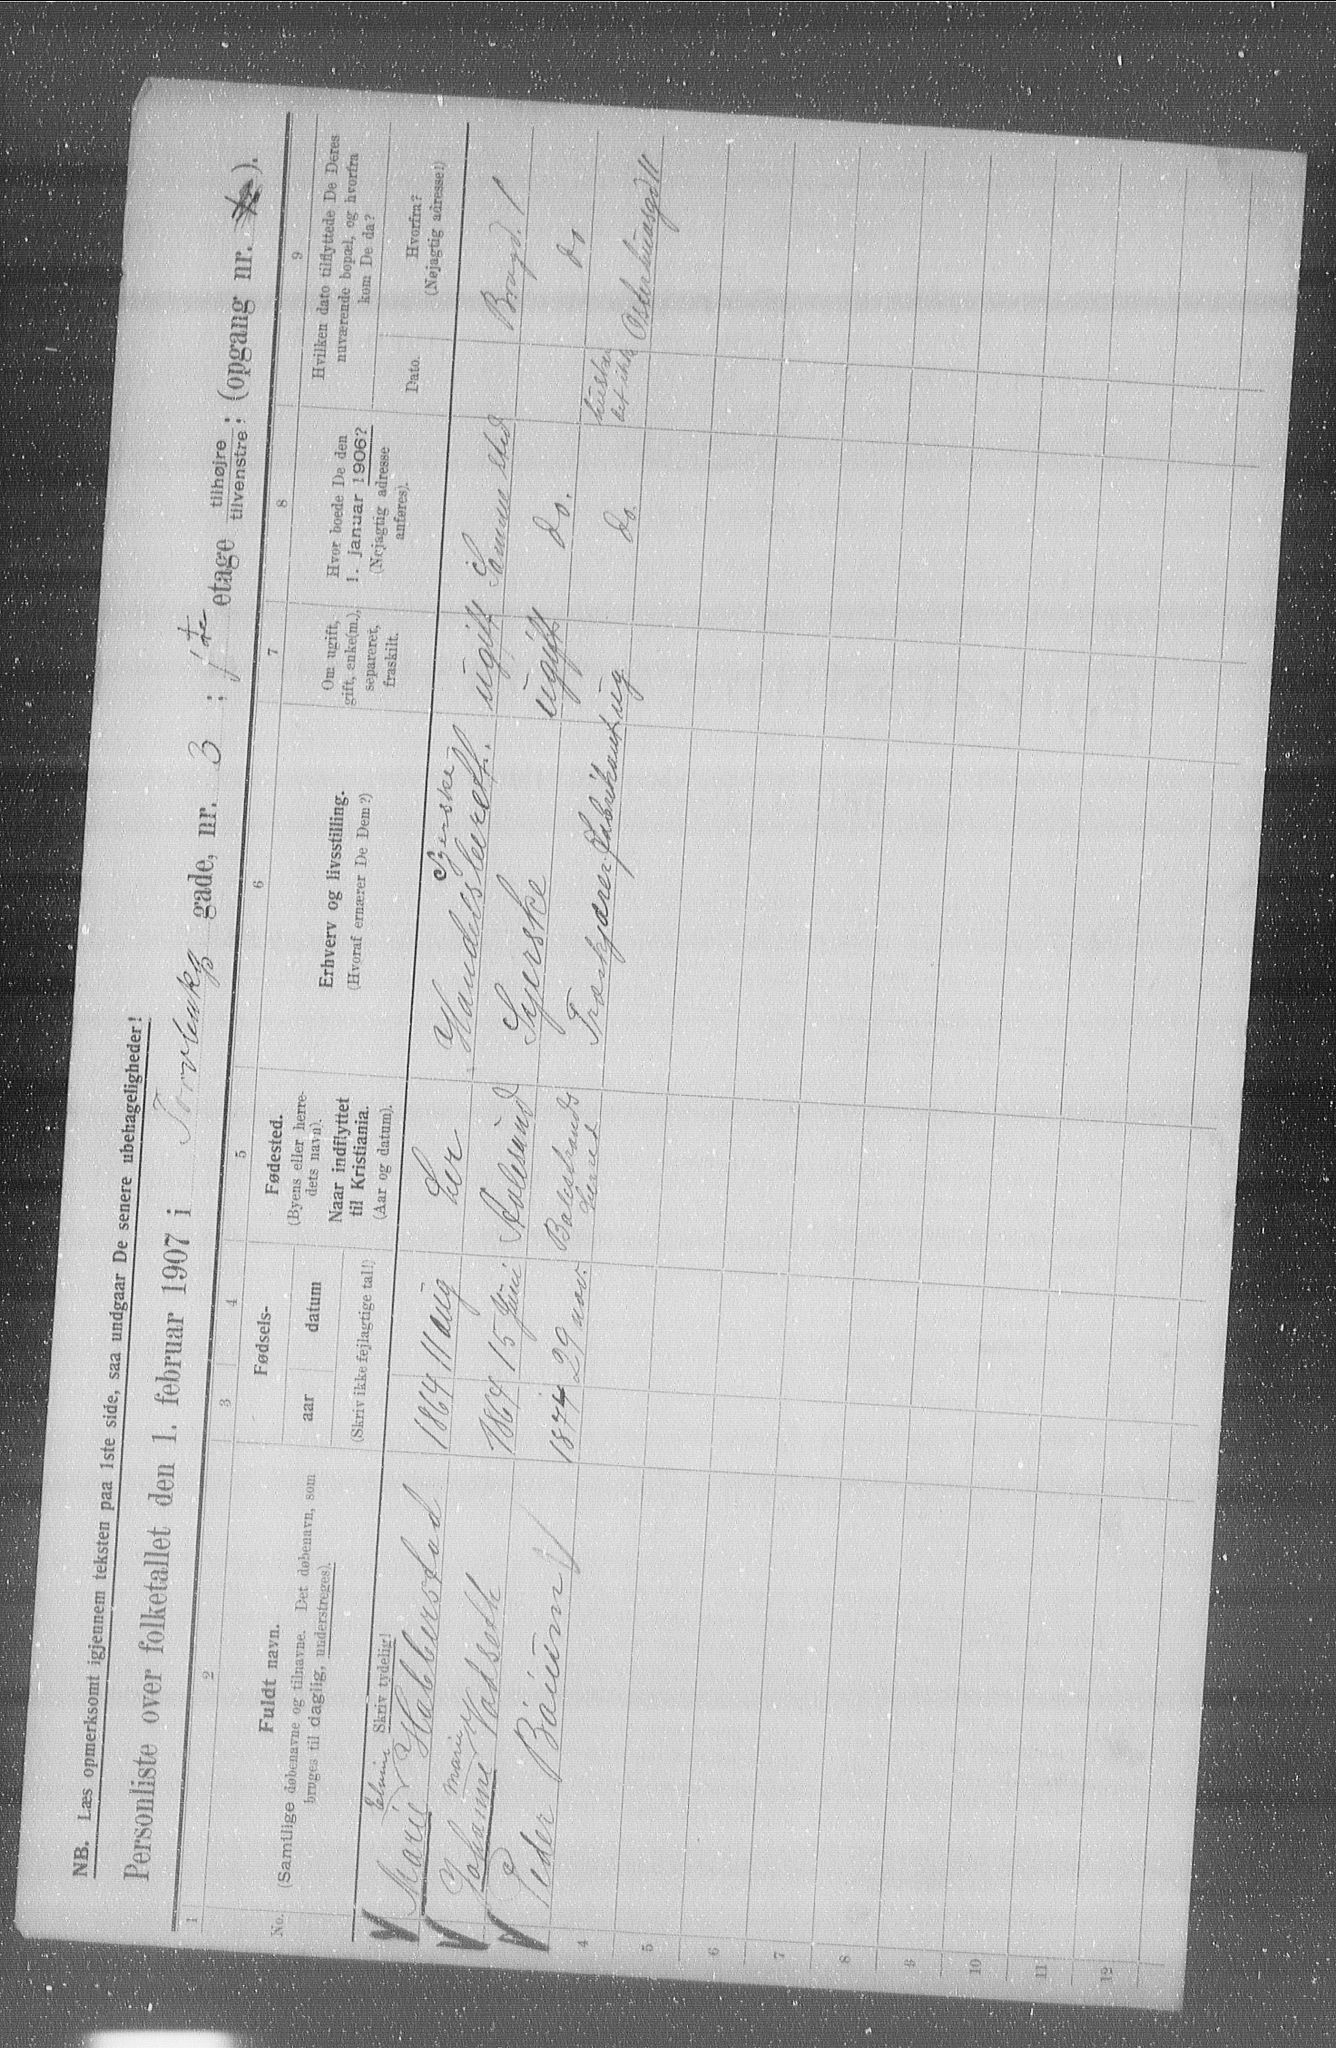 NB. Læs opmerksomt igjennem teksten paa 1ste side, saa undgaar De senere ubehageligheder!
Personliste over folketallet den 1. februar 1907 i Torvbakk gade, nr. 3; 1ste etage tilhøjre / tilvenstre; (opgang nr. ).
1 2 3 4 5 6 7 8 9
No.
Fuldt navn.
(Samtlige døbenavne og tilnavne. Det døbenavn, som
bruges til daglig, understreges).
Skriv tydelig!
Fødsels-
aar datum
(Skriv ikke fejlagtige tal!)
Fødested.
(Byens eller herre-
dets navn).
Naar indflyttet
til Kristiania.
(Aar og datum).
Erhverv og livsstilling.
(Hvoraf ernærer De Dem?)
Om ugift,
gift, enke(m.),
separeret,
fraskilt.
Hvor boede De den
1. januar 1906?
(Nøjagtig adresse
anføres).
Hvilken dato tilflyttede De Deres
nuværende bopæl, og hvorfra
kom De da?
Dato.
Hvorfra?
(Nøjagtig adresse!)
Marie Elvine Habberstad 1864 11 aug Her Handels ugift Samme sted Brugd. 1
Johanne Marie Vadseth 1864 15 Juni Aalesund Syerske ugift do. do
Peder Bäium 1874 29 nov. Balestrands herred Træskjærer fabrikant ug. do. husker det ikke Osterhausgd 11
4
5
6
7
8
9
10
11
12